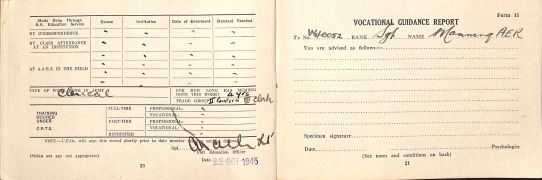 Study Done Through A.A. Education Service
Course
Institution
Date of Enrolment
Standard Reached
BY CORRESPONDENCE
BY CLASS ATTENDANCE AT AN INSTITUTION
AT A.A.E.S. IN THE FIELD
TYPE OF WORK DONE IN ARMY
Clerical
HOW LONG HAS MEMBER DONE THIS WORK?
4 yrs
TRADE GROUP
II clerk
TRAINING DESIRED UNDER C.R.T.S.
FULL-TIME
PROFESSIONAL:
VOCATIONAL:
PART-TIME
PROFESSIONAL:
VOCATIONAL:
REFRESHER
Sgd.
Unit Education Officer
Date 22 OCT 1945
(Strike out any not appropriate)
20
Form 15
VOCATIONAL GUIDANCE REPORT
To No. RANK Sgt NAME Manning AER
You are advised as follows:—
Specimen signature
Date
Psychologist
(See notes and conditions on back)
21